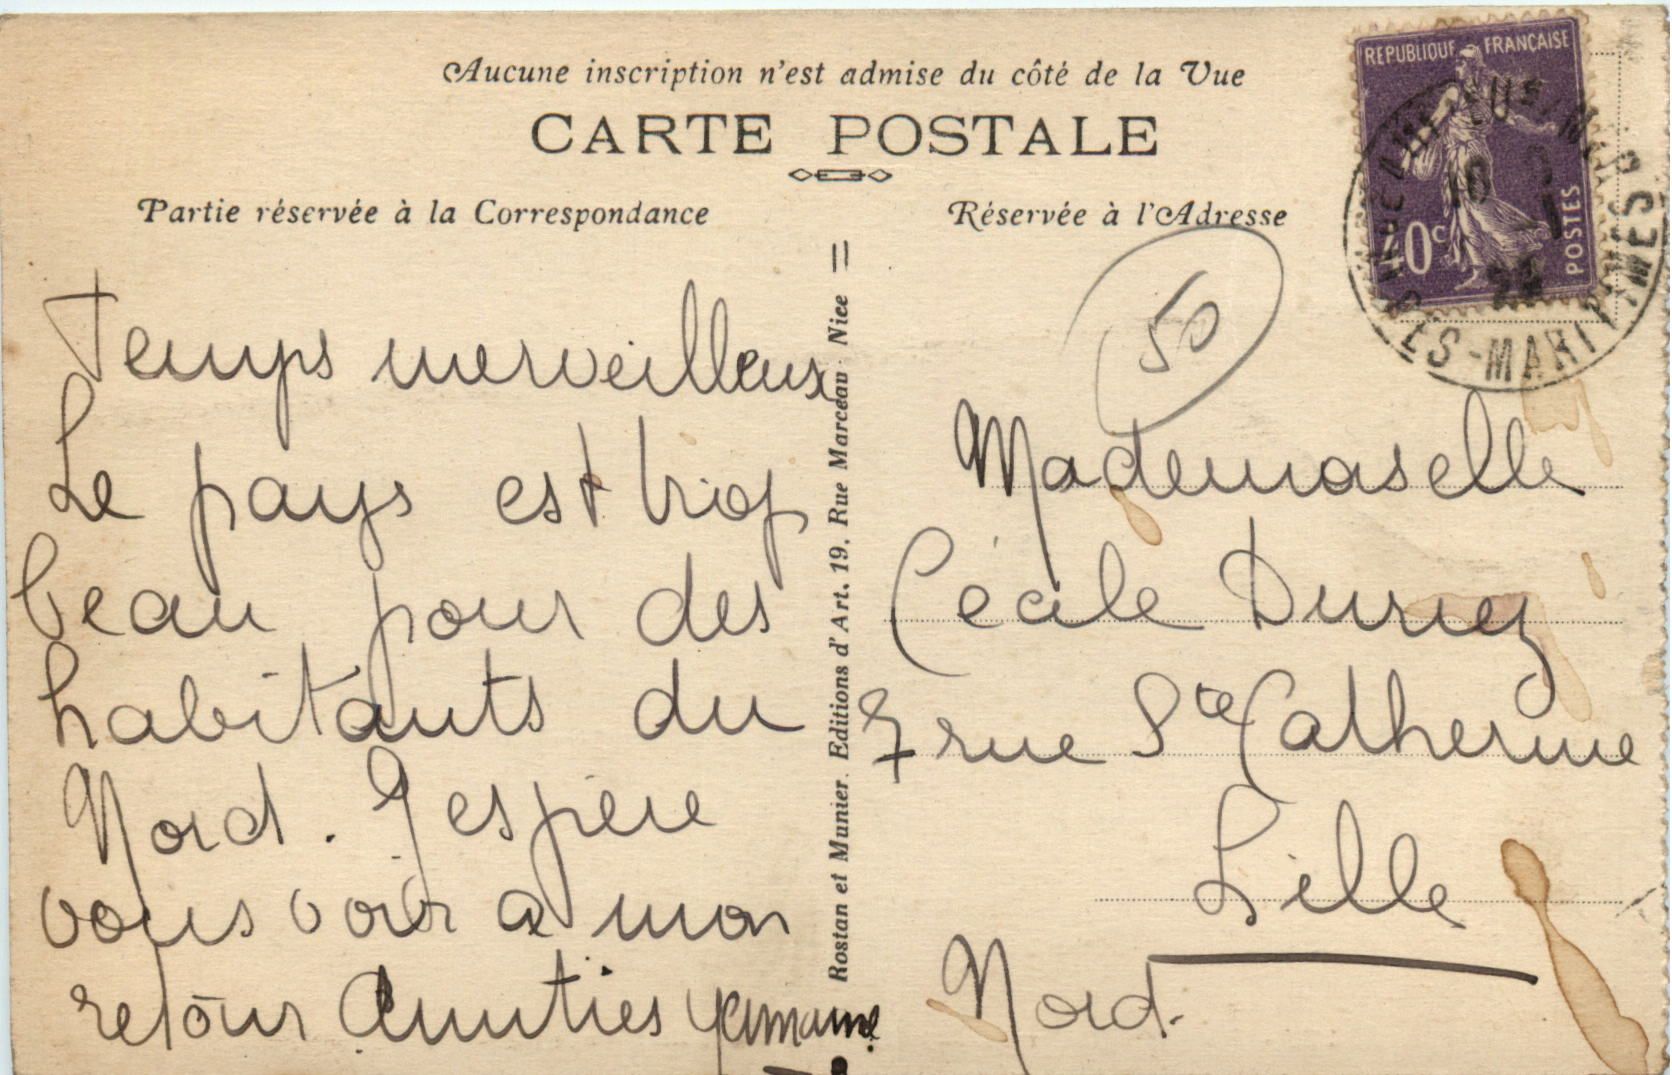 Aucune inscription n'est admise du côté de la Vue
CARTE POSTALE
Partie réservée à la Correspondance
Réservée à l'Adresse
REPUBLIQUE FRANÇAISE
POSTES
ES-MARITIMES
50
Temps merveilleux
Le pays est trop
beau pour des
habitants du
Nord. J espère
vous voir a mon
retour Amitiés
Rostan et Munier. Editions d'Art. 19, Rue Marceau - Nice
Mademoiselle
Cécile
7 rue Ste Catherine
Lille
Nord.